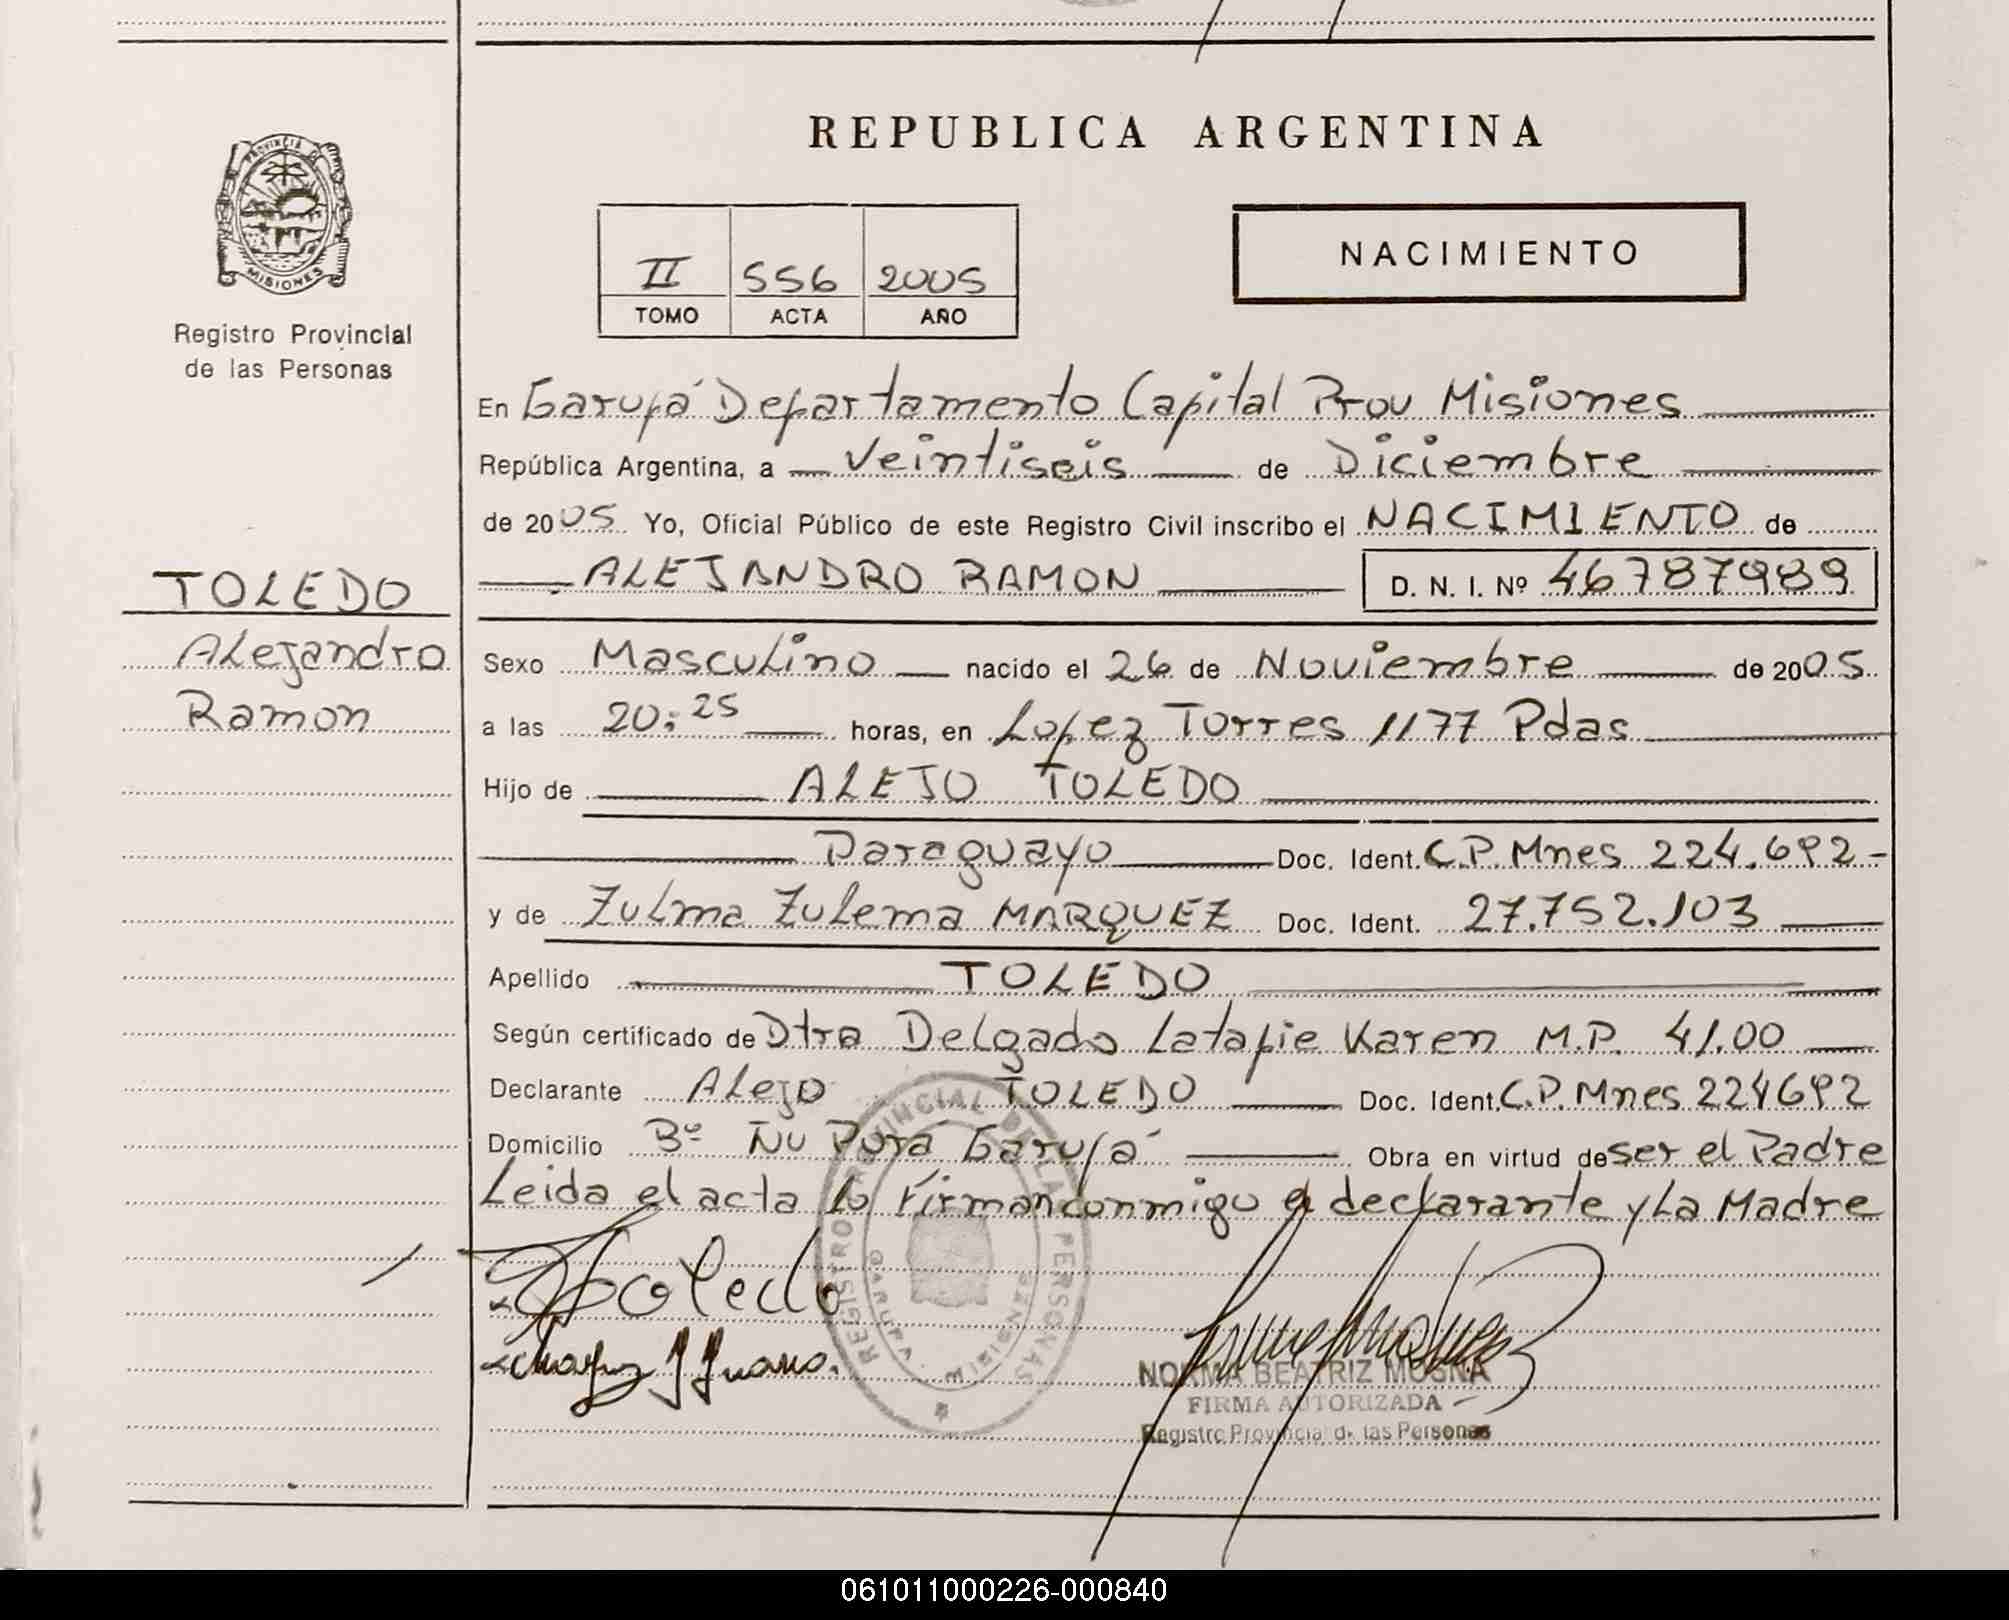 REPUBLICA ARGENTINA
PROVINCIA DE
MISIONES
Registro Provincial
de las Personas
TOLEDO
Alejandro
Ramon
II 556 2005
TOMO ACTA AÑO
NACIMIENTO
En Garupá Departamento Capital Prov Misiones
República Argentina, a Veintiseis de Diciembre
de 2005 Yo, Oficial Público de este Registro Civil inscribo el NACIMIENTO de
ALEJANDRO RAMON D. N. I. Nº 46787989
Sexo Masculino nacido el 26 de Noviembre de 2005
a las 20:25 horas, en Lopez Torres 1177 Pdas
Hijo de ALEJO TOLEDO
Paraguayo Doc. Ident. C.P. Mnes 224.692-
y de Zulma Zulema MARQUEZ Doc. Ident. 27.752.103
Apellido TOLEDO
Según certificado de Dtra Delgado Latapie Karen M.P. 41.00
Declarante Alejo TOLEDO Doc. Ident. C.P. Mnes 224692
Domicilio Bº Ñu Pora Garupá Obra en virtud de ser el Padre
Leida el acta lo Firman conmigo el declarante y La Madre
Toledo
REGISTRO PROVINCIAL DE LAS PERSONAS
GARUPA MISIONES
NORMA BEATRIZ MOSNA
FIRMA AUTORIZADA
Registro Provincial de las Personas
061011000226-000840